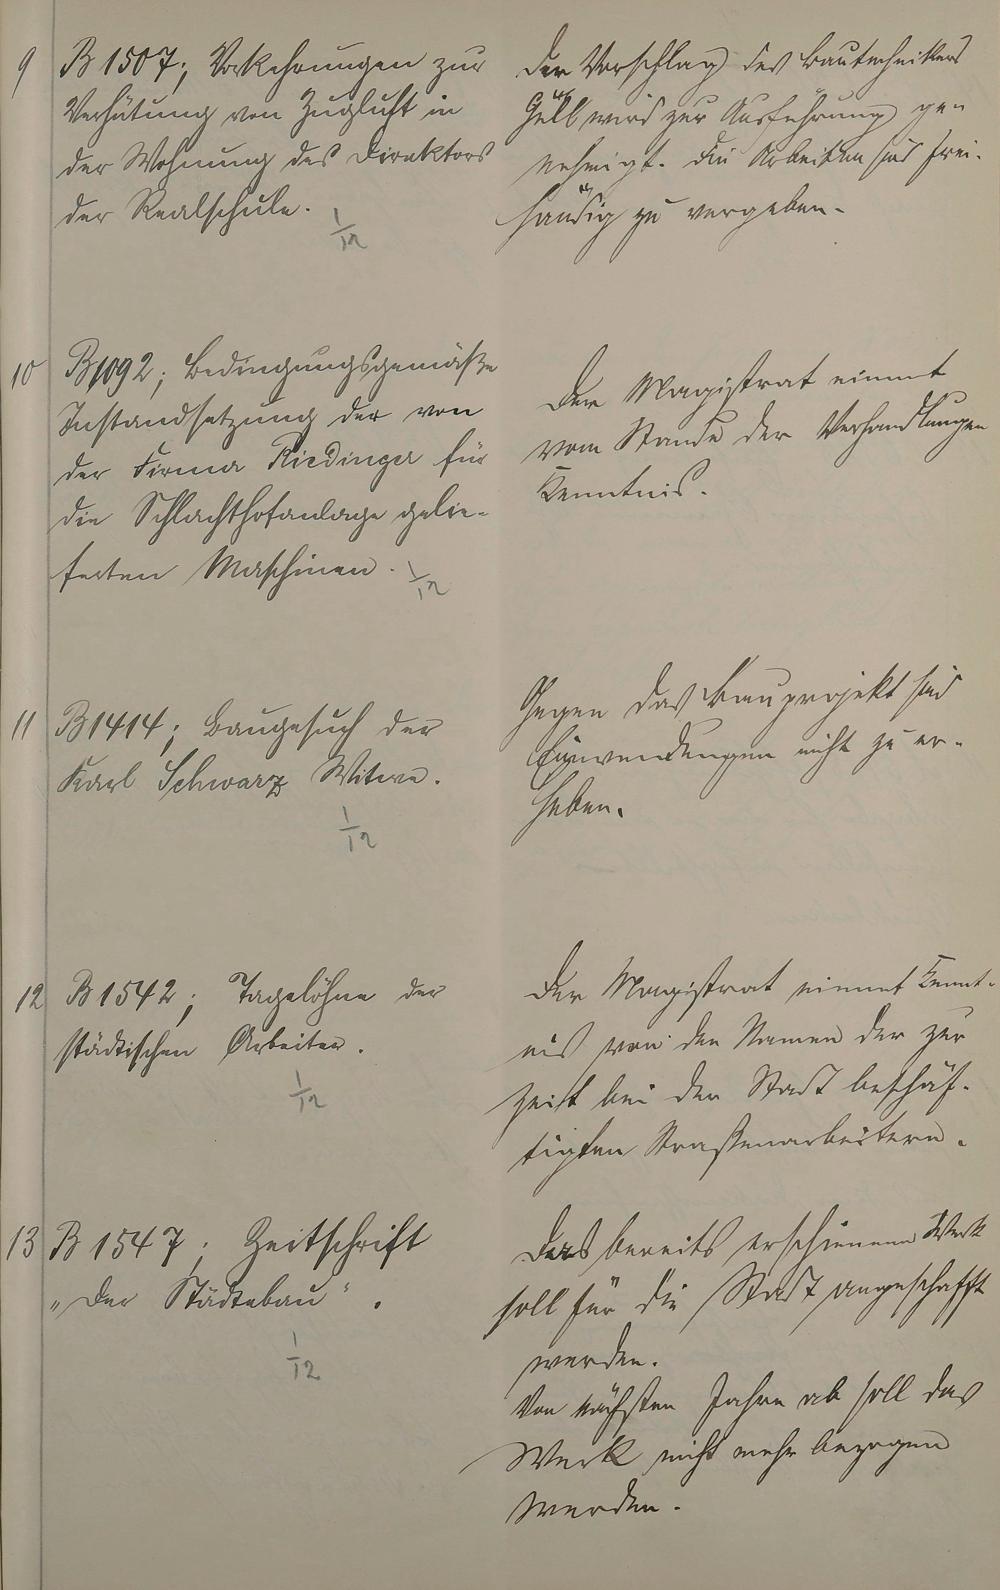 9
B 1507; Vorkehrungen zur
Verhütung von Zugluft in
der Wohnung des Direktors
der Realschule.
1/12
Der Vorschlag des Bautechnikers
wird zur Ausführung ge-
nehmigt. Die Arbeiten sind frei-
händig zu vergeben.
10
B 1092; Bedingungsgemäße
Instandsetzung der von
der Firma Riedinger für
die Schlachthofanlage gelie-
ferten Maschinen.
1/12
Der Magistrat nimmt
vom Stande der Verhandlungen
Kenntnis.
11
B 1414; Baugesuch der
Karl Schwarz Witwe.
1/12
Gegen das Bauprojekt sind
Einwendungen nicht zu er-
heben.
12
B 1542; Tagelöhne der
städtischen Arbeiter.
1/12
Der Magistrat nimmt Kennt-
nis von den Namen der zur
Zeit bei der Stadt beschäf-
tigten Straßenarbeitern.
13
B 1547; Zeitschrift
„Der Städtebau".
1/12
Das bereits erschienene Werk
soll für die Stadt angeschafft
werden.
Von nächsten Jahre ab soll das
Werk nicht mehr bezogen
werden.